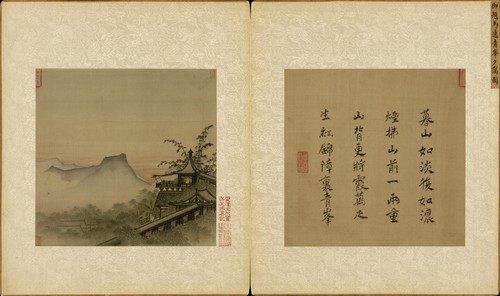 暮山如淡復如濃
煙拂山前一兩重
山背更將霞萬疋
生紅錦障裹青峯